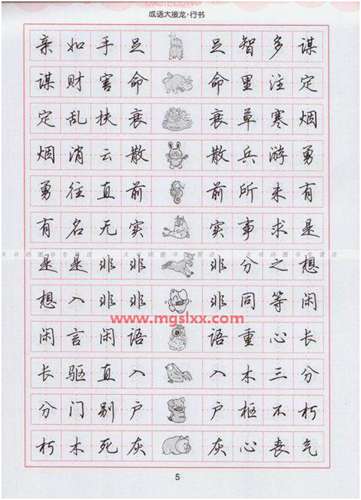 成语大接龙·行书
亲如手足 足智多谋
谋财害命 命里注定
定乱扶衰 衰草寒烟
烟消云散 散兵游勇
勇往直前 前所未有
有名无实 实事求是
是是非非 非分之想
想入非非 非同等闲
www.mgslxx.com
闲言闲语 语重心长
长驱直入 入木三分
分门别户 户枢不朽
朽木死灰 灰心丧气
5